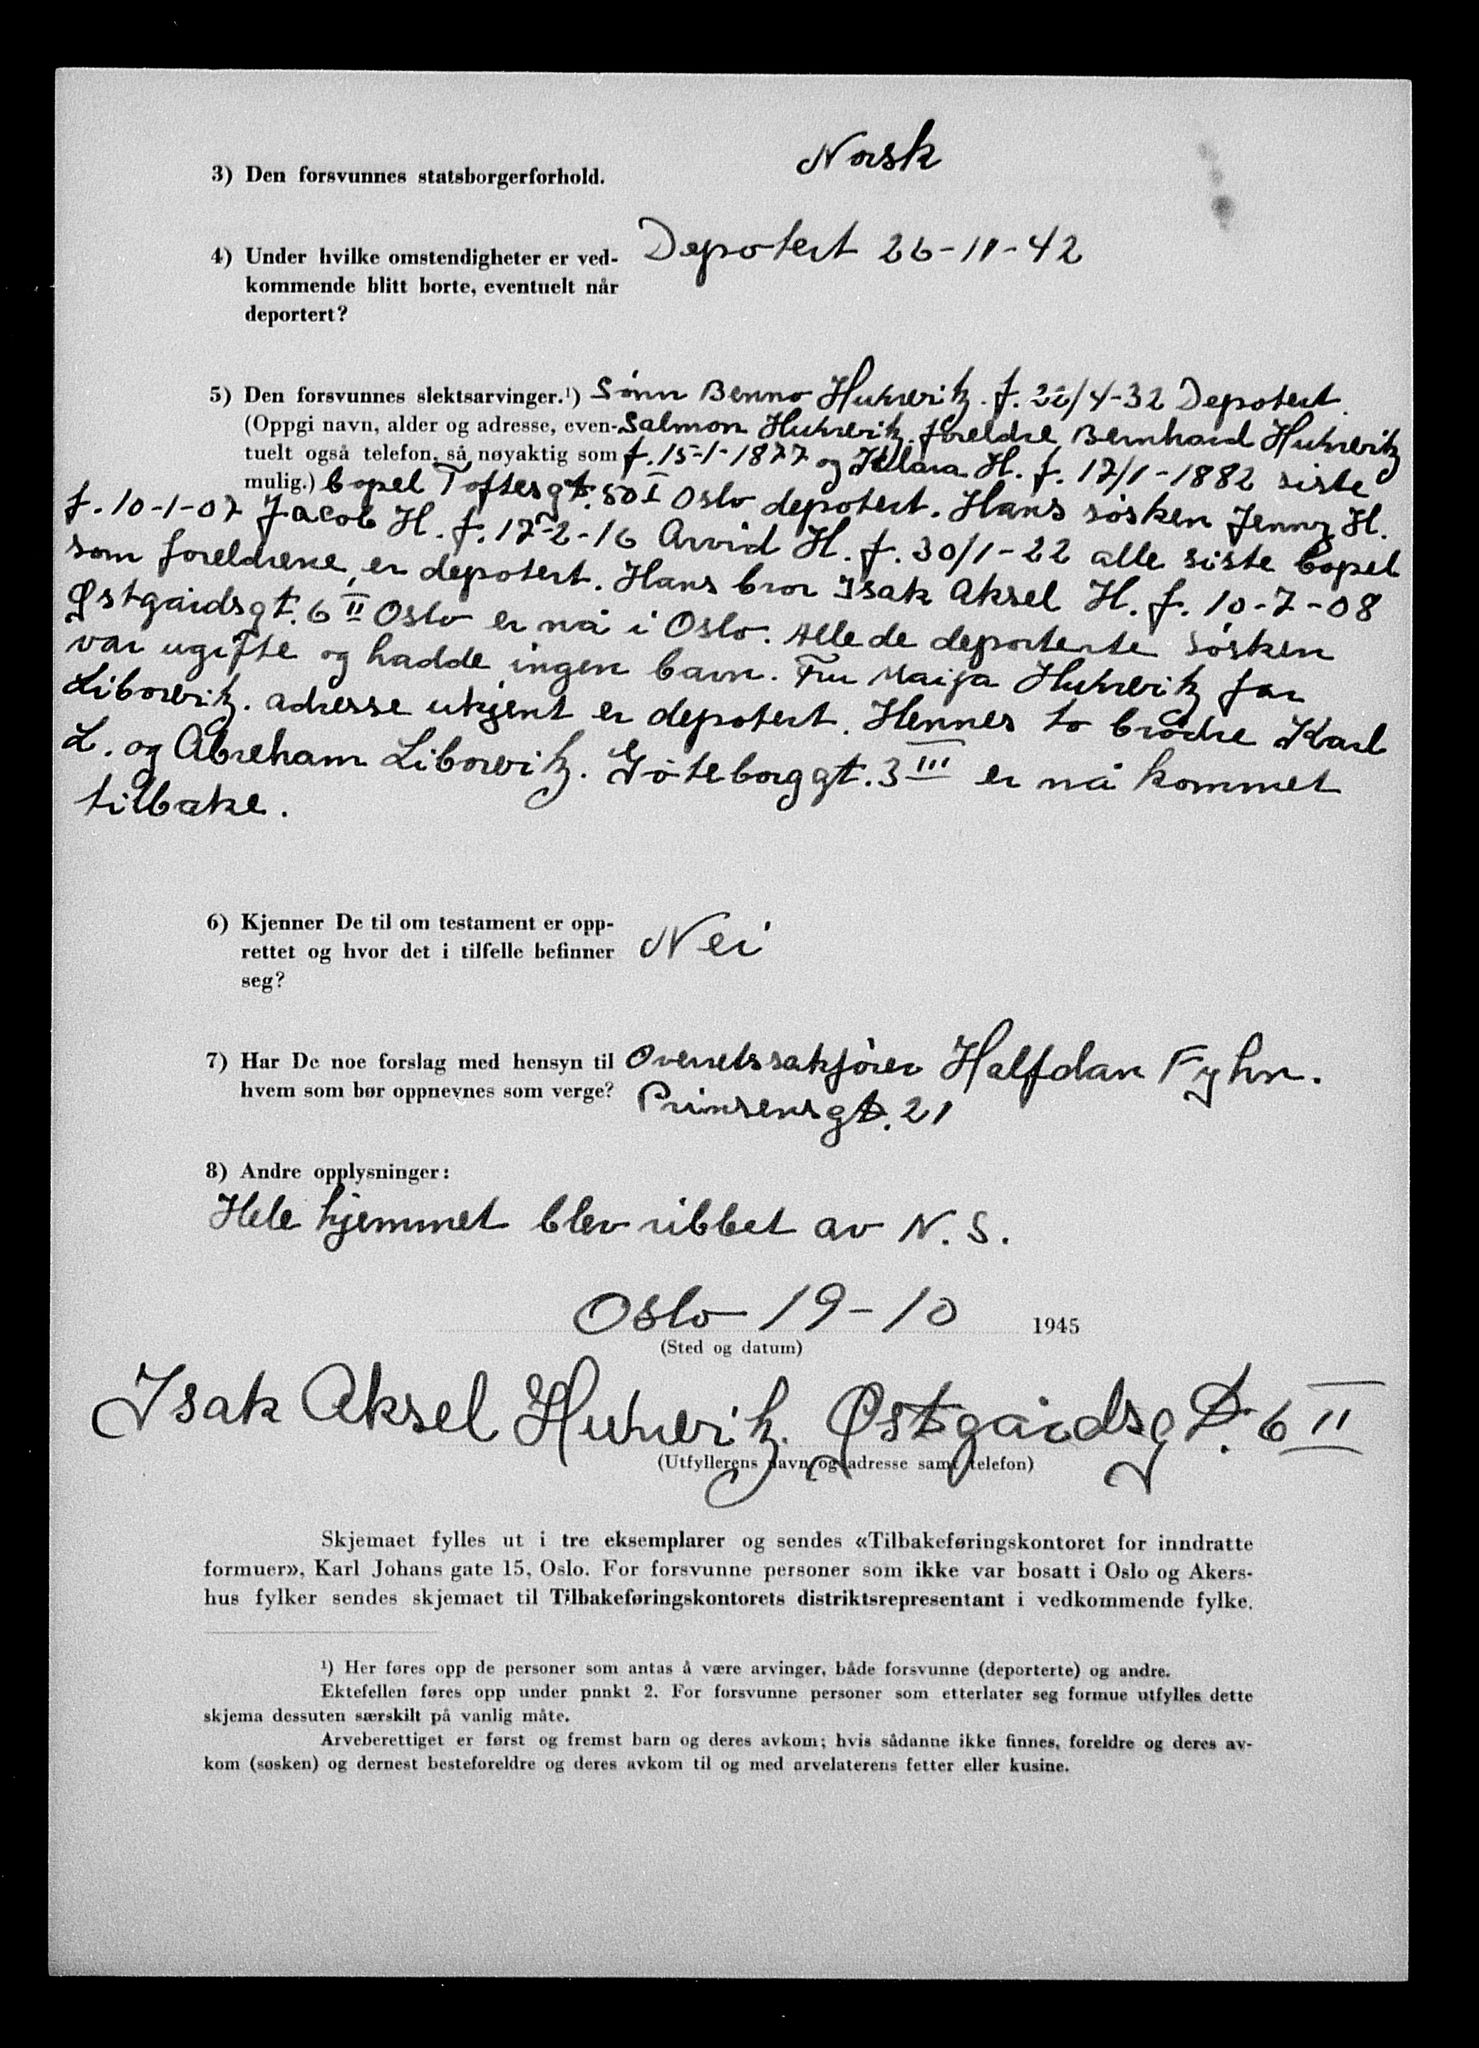 Norsk
3) Den forsvunnes statsborgerforhold.
Depotert 26-11-42
4) Under hvilke omstendigheter er ved-
kommende blitt borte, eventuelt når
deportert?
5) Den forsvunnes slektsarvinger.¹) Sønn Benno Hurwitz. f. 22/4-32 Depotert.
(Oppgi navn, alder og adresse, even- Salmon Hurwitz. foreldre Bernhard Hurwitz
tuelt også telefon, så nøyaktig som f. 15-1-1877 og Klara H. f. 17/1-1882 siste
mulig.) bopel Toftesgt. 50 I Oslo depotert. Hans søsken Jenny H.
f. 10-1-07 Jacob H. f. 17-2-16 Arvid H. f. 30/1-22 alle siste bopel
som foreldrene, er depotert. Hans bror Isak Aksel H. f. 10-7-08
Østgårdsgt. 6 II Oslo er nå i Oslo. Alle de deporterte søsken
var ugifte og hadde ingen barn. Fru Marja Hurwitz før
Liborwitz. adresse ukjent er depotert. Hennes to brødre Karl
L. og Abreham Liborwitz. Gøteborggt. 3 III er nå kommet
tilbake.
6) Kjenner De til om testament er opp-
rettet og hvor det i tilfelle befinner
seg?
Nei
7) Har De noe forslag med hensyn til
hvem som bør oppnevnes som verge?
Overretssakfører Halfdan Fyhn.
Prinsensgt. 21
8) Andre opplysninger:
Hele hjemmet blev ribbet av N. S.
Oslo 19-10 1945
(Sted og datum)
Isak Aksel Hurwitz. Østgårdsgt. 6 II
(Utfyllerens navn og adresse samt telefon)
Skjemaet fylles ut i tre eksemplarer og sendes «Tilbakeføringskontoret for inndratte
formuer», Karl Johans gate 15, Oslo. For forsvunne personer som ikke var bosatt i Oslo og Akers-
hus fylker sendes skjemaet til Tilbakeføringskontorets distriktsrepresentant i vedkommende fylke.
¹) Her føres opp de personer som antas å være arvinger, både forsvunne (deporterte) og andre.
Ektefellen føres opp under punkt 2. For forsvunne personer som etterlater seg formue utfylles dette
skjema dessuten særskilt på vanlig måte.
Arveberettiget er først og fremst barn og deres avkom; hvis sådanne ikke finnes, foreldre og deres av-
kom (søsken) og dernest besteforeldre og deres avkom til og med arvelaterens fetter eller kusine.